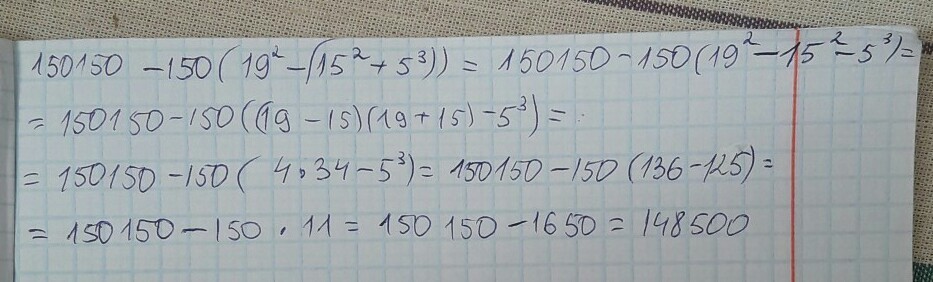 150150 - 150(19² - (15² + 5³)) = 150150 - 150(19² - 15² - 5³) =
= 150150 - 150((19 - 15)(19 + 15) - 5³) =
= 150150 - 150( 4 · 34 - 5³) = 150150 - 150(136 - 125) =
= 150150 - 150 · 11 = 150 150 - 1650 = 148500